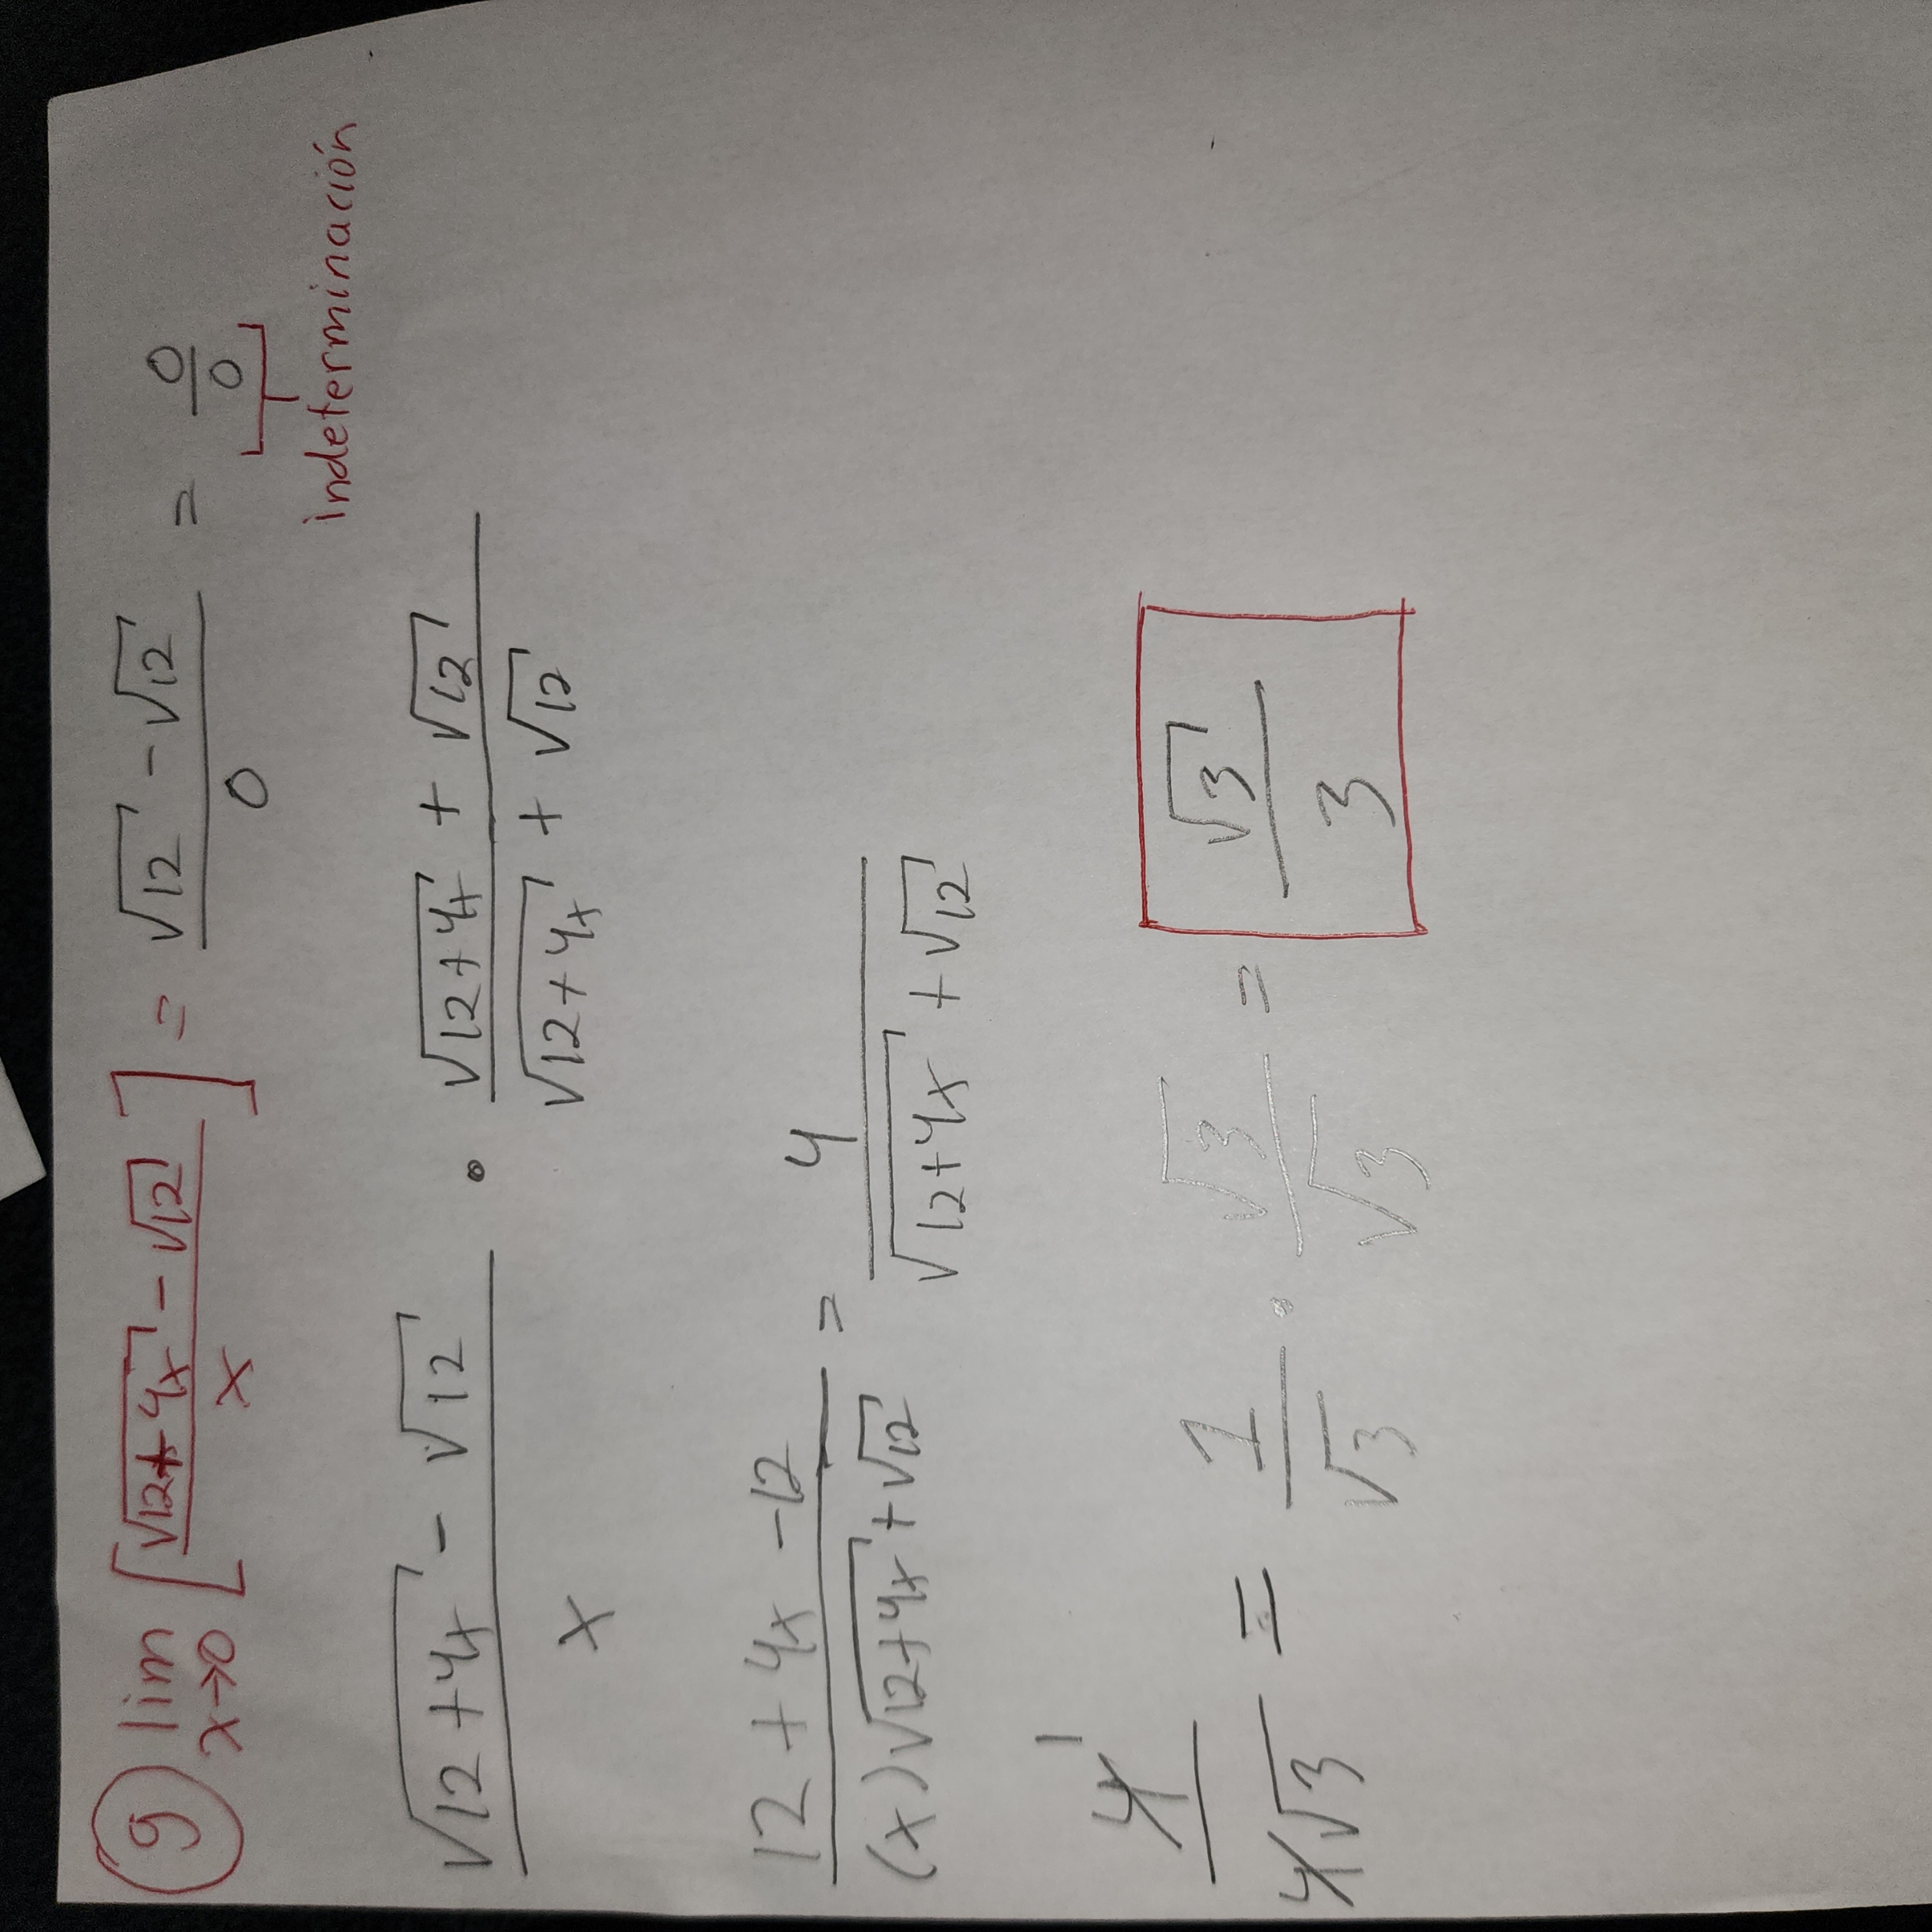 9 lim x→0 [(√(12+4x) − √12)/x] = (√12 − √12)/0 = 0/0
indeterminación
(√(12+4x) − √12)/x · (√(12+4x) + √12)/(√(12+4x) + √12)
(12 + 4x − 12)/((x)√(12+4x) + √12) = 4/(√(12+4x) + √12)
4 1/(4√3) = 1/√3 · √3/√3 = √3/3